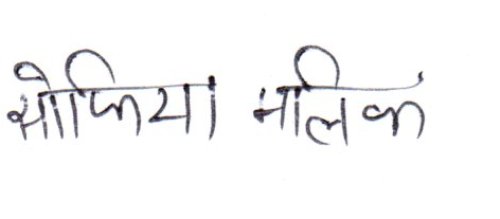 सोफिया मलिक